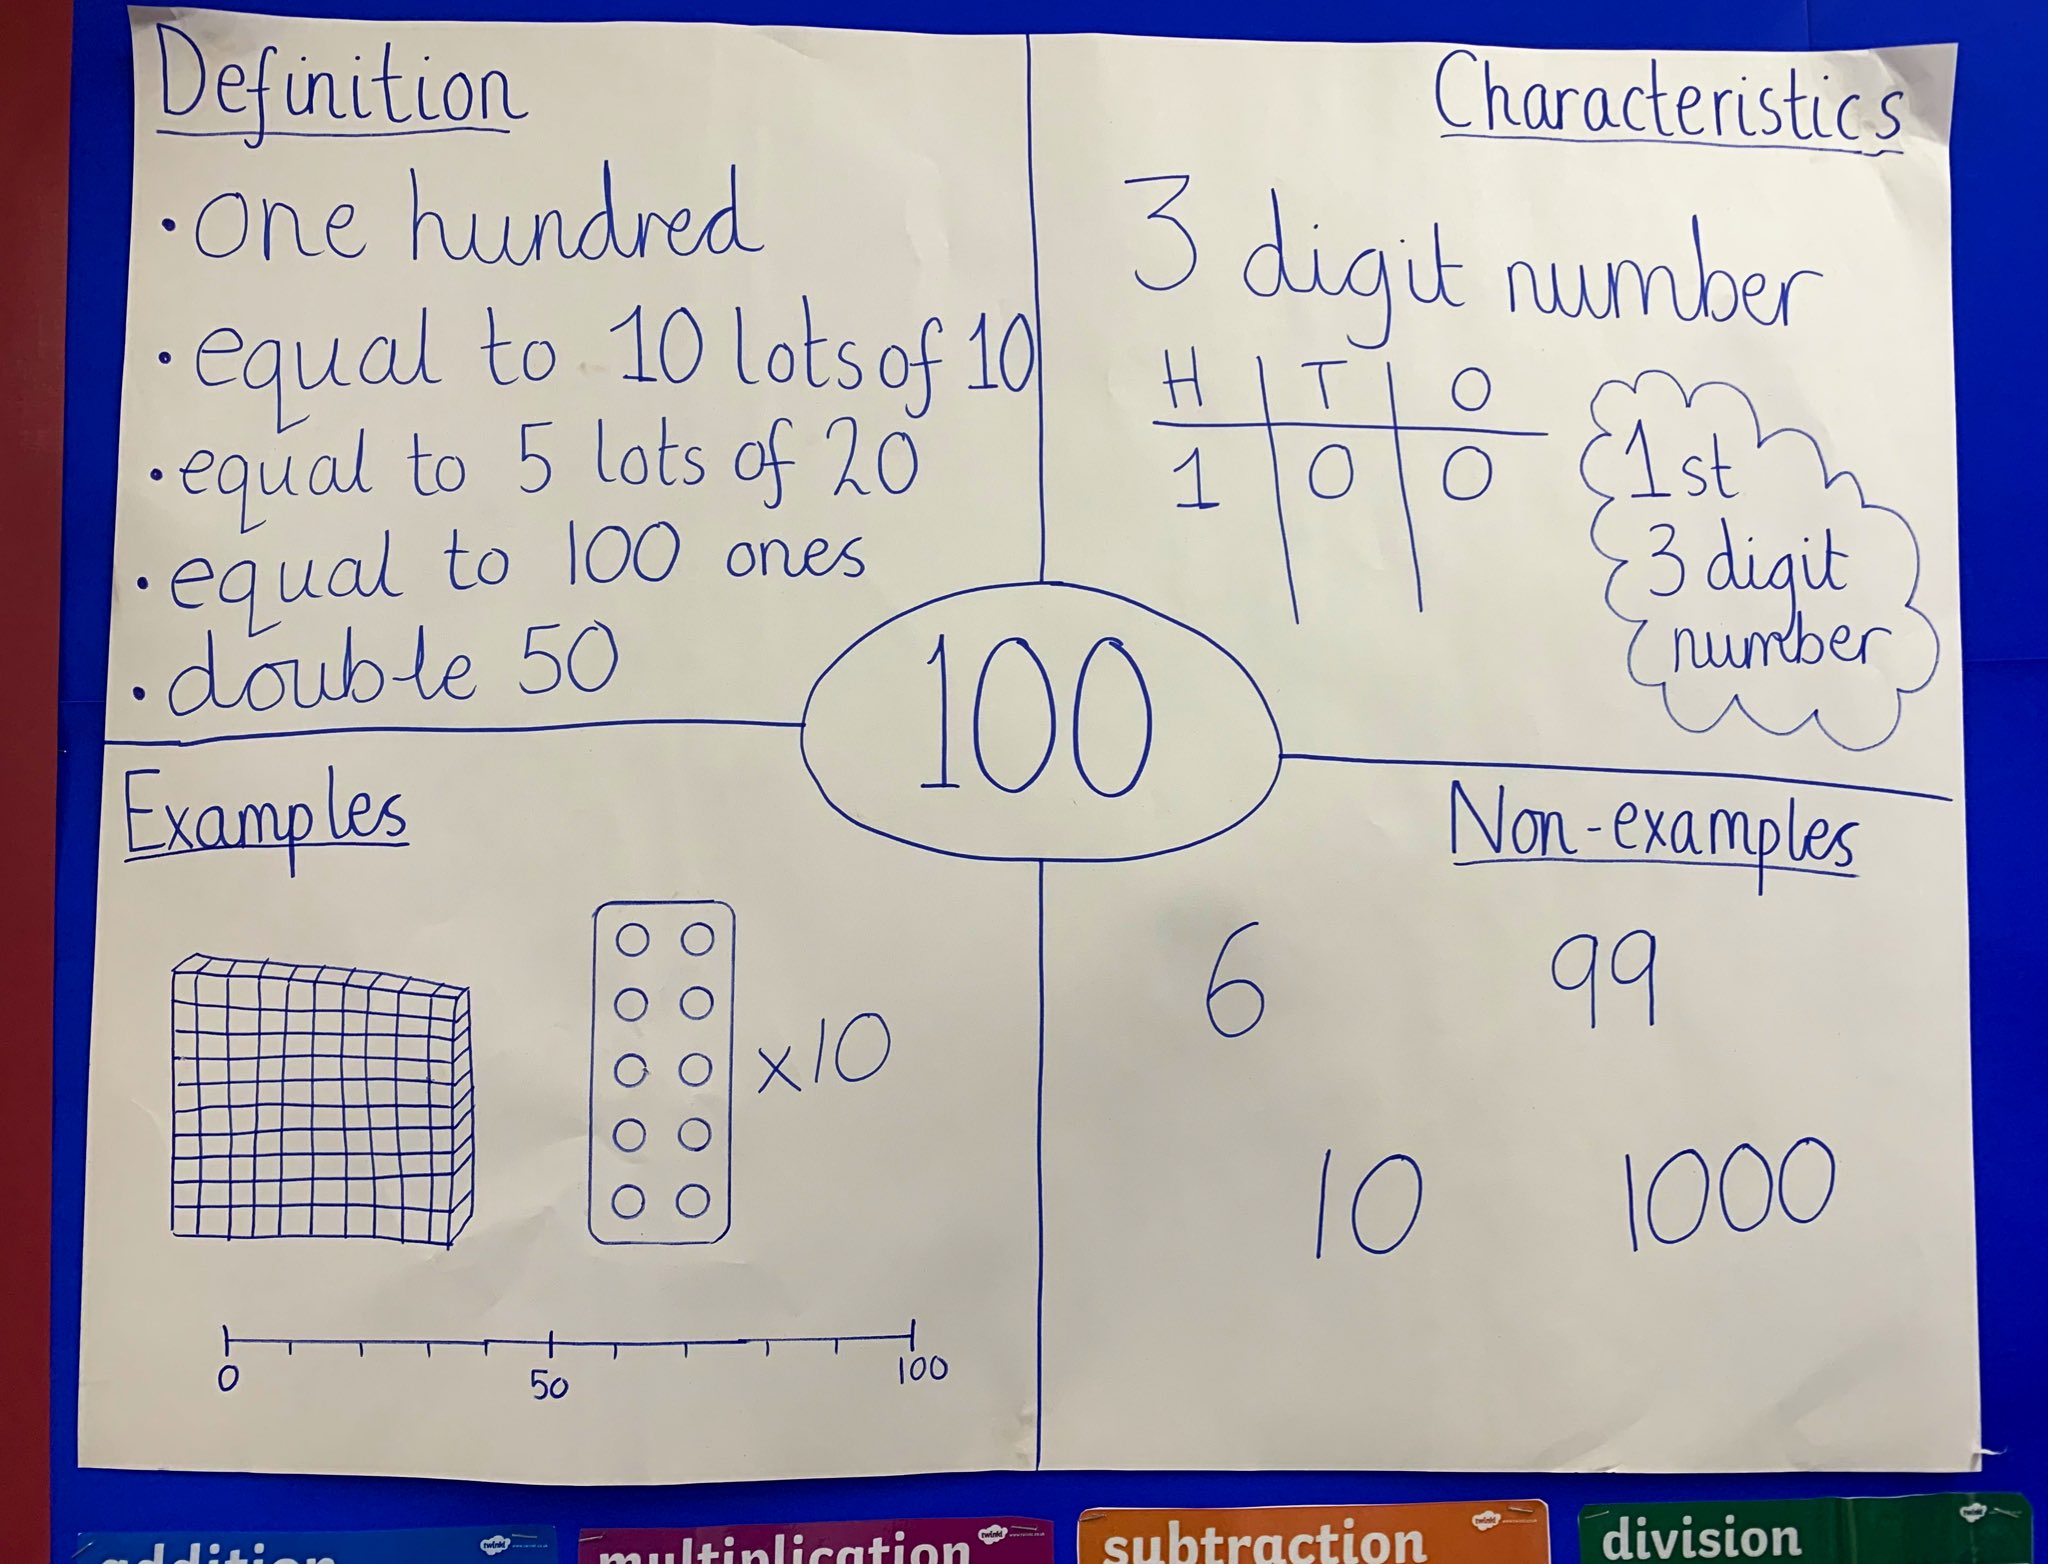 Definition
• one hundred
• equal to 10 lots of 10
• equal to 5 lots of 20
• equal to 100 ones
• double 50
Characteristics
3 digit number
H T O
1 0 0
1st
3 digit
number
100
Examples
x10
0 50 100
Non-examples
6 99
10 1000
addition
twinkl
multiplication
twinkl
subtraction
twinkl
division
twinkl